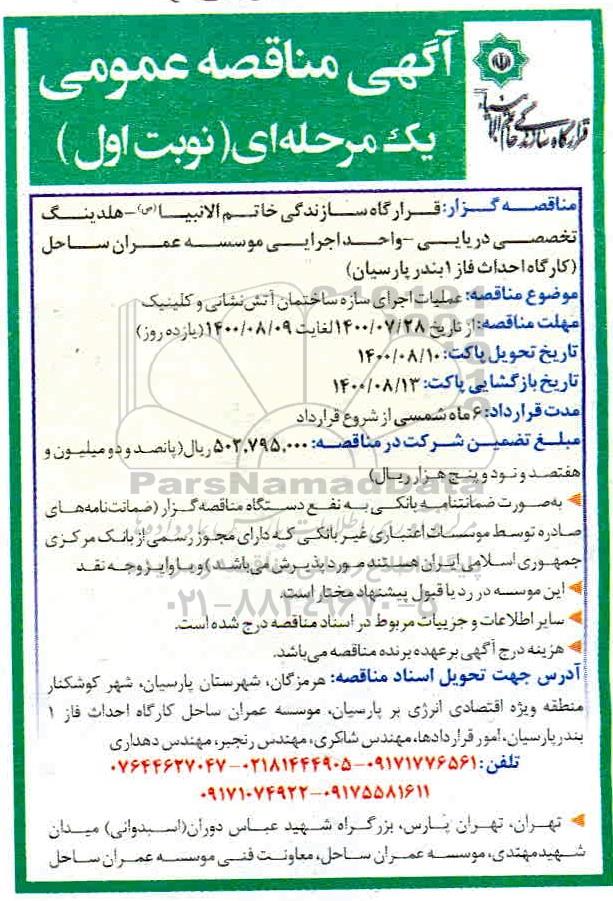 آگهی مناقصه عمومی
یک مرحله‌ای (نوبت اول)
قرارگاه سازندگی خاتم الانبیاء
مناقصه گزار: قرارگاه سازندگی خاتم الانبیا (ص) - هلدینگ
تخصصی دریایی - واحد اجرایی موسسه عمران ساحل
(کارگاه احداث فاز ۱ بندر پارسیان)
موضوع مناقصه: عملیات اجرای سازه ساختمان آتش‌نشانی و کلینیک
مهلت مناقصه: از تاریخ ۱۴۰۰/۰۷/۲۸ لغایت ۱۴۰۰/۰۸/۰۹ (یازده روز)
تاریخ تحویل پاکت: ۱۴۰۰/۰۸/۱۰
تاریخ بازگشایی پاکت: ۱۴۰۰/۰۸/۱۳
مدت قرارداد: ۶ ماه شمسی از شروع قرارداد
مبلغ تضمین شرکت در مناقصه: ۵۰۲,۷۹۵,۰۰۰ ریال (پانصد و دو میلیون و
هفتصد و نود و پنج هزار ریال)
به‌صورت ضمانتنامه بانکی به نفع دستگاه مناقصه گزار (ضمانت‌نامه‌های
صادره توسط موسسات اعتباری غیر بانکی که دارای مجوز رسمی از بانک مرکزی
جمهوری اسلامی ایران هستند مورد پذیرش می‌باشد) و یا واریز وجه نقد
این موسسه در رد یا قبول پیشنهاد مختار است.
سایر اطلاعات و جزییات مربوط در اسناد مناقصه درج شده است.
هزینه درج آگهی بر عهده برنده مناقصه می‌باشد.
آدرس جهت تحویل اسناد مناقصه: هرمزگان، شهرستان پارسیان، شهر کوشکنار
منطقه ویژه اقتصادی انرژی بر پارسیان، موسسه عمران ساحل کارگاه احداث فاز ۱
بندر پارسیان، امور قراردادها، مهندس شاکری، مهندس رنجبر، مهندس دهداری
تلفن: ۰۹۱۷۱۷۷۶۵۶۱-۰۲۱۸۱۴۴۴۹۰۵-۰۷۶۴۴۶۲۷۰۴۷
۰۹۱۷۵۵۸۱۶۱۱-۰۹۱۷۱۰۷۴۹۲۲
تهران، تهران پارس، بزرگراه شهید عباس دوران (اسبدوانی) میدان
شهید مهتدی، موسسه عمران ساحل، معاونت فنی موسسه عمران ساحل
ParsNamadData
۰۲۱-۸۸۳۴۹۶۷۰-۵